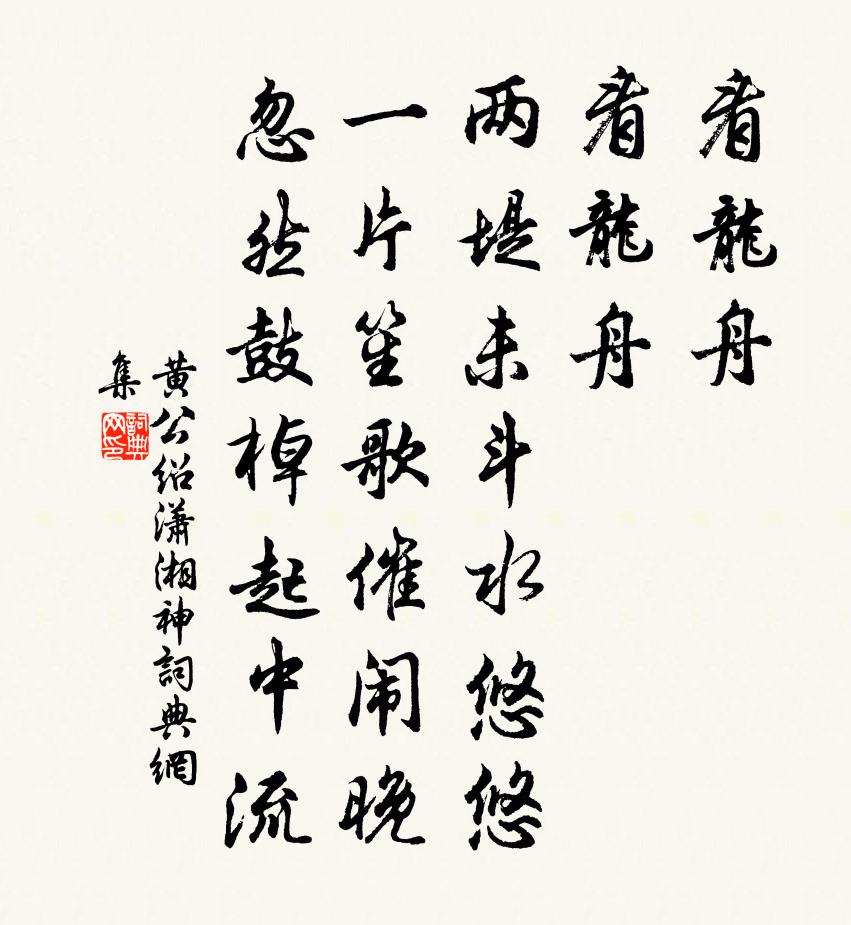 看龍舟
看龍舟
两堤未斗水悠悠
一片笙歌催闹晚
忽然鼓棹起中流
黄公绍瀟湘神詞典網
集
詞典网印